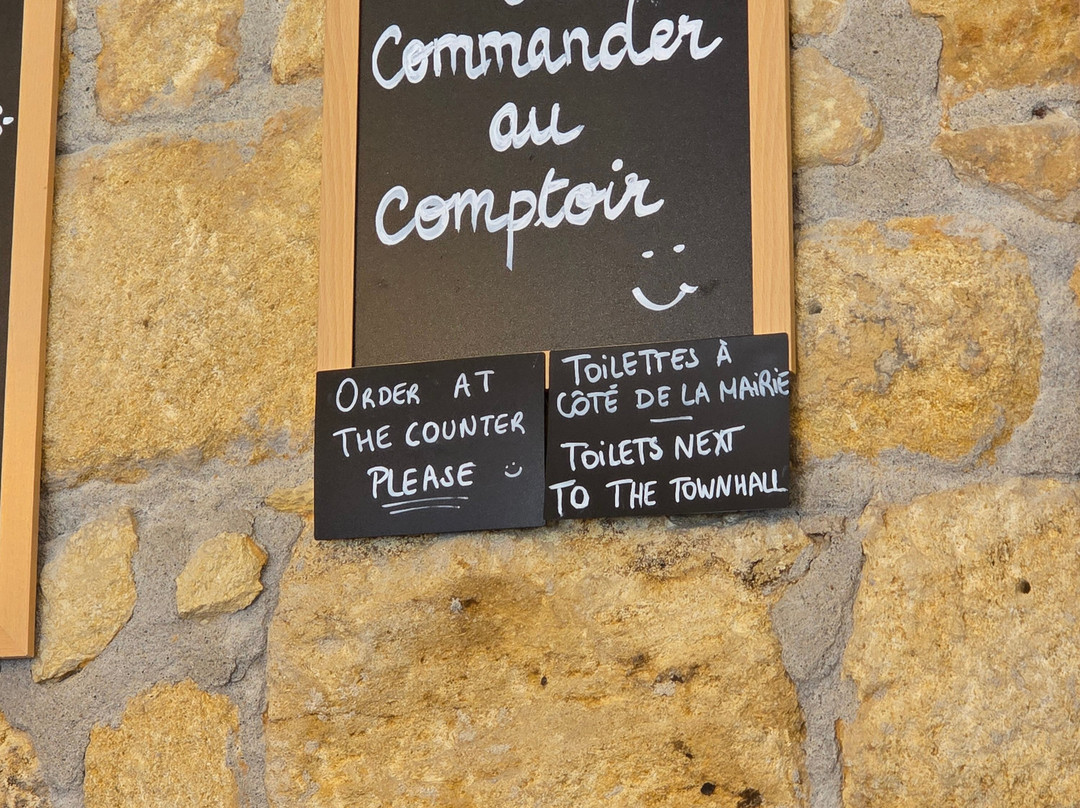 Commander
au
Comptoir
ORDER AT
THE COUNTER
PLEASE
TOILETTES À
CÔTÉ DE LA MAIRIE
TOILETS NEXT
TO THE TOWNHALL